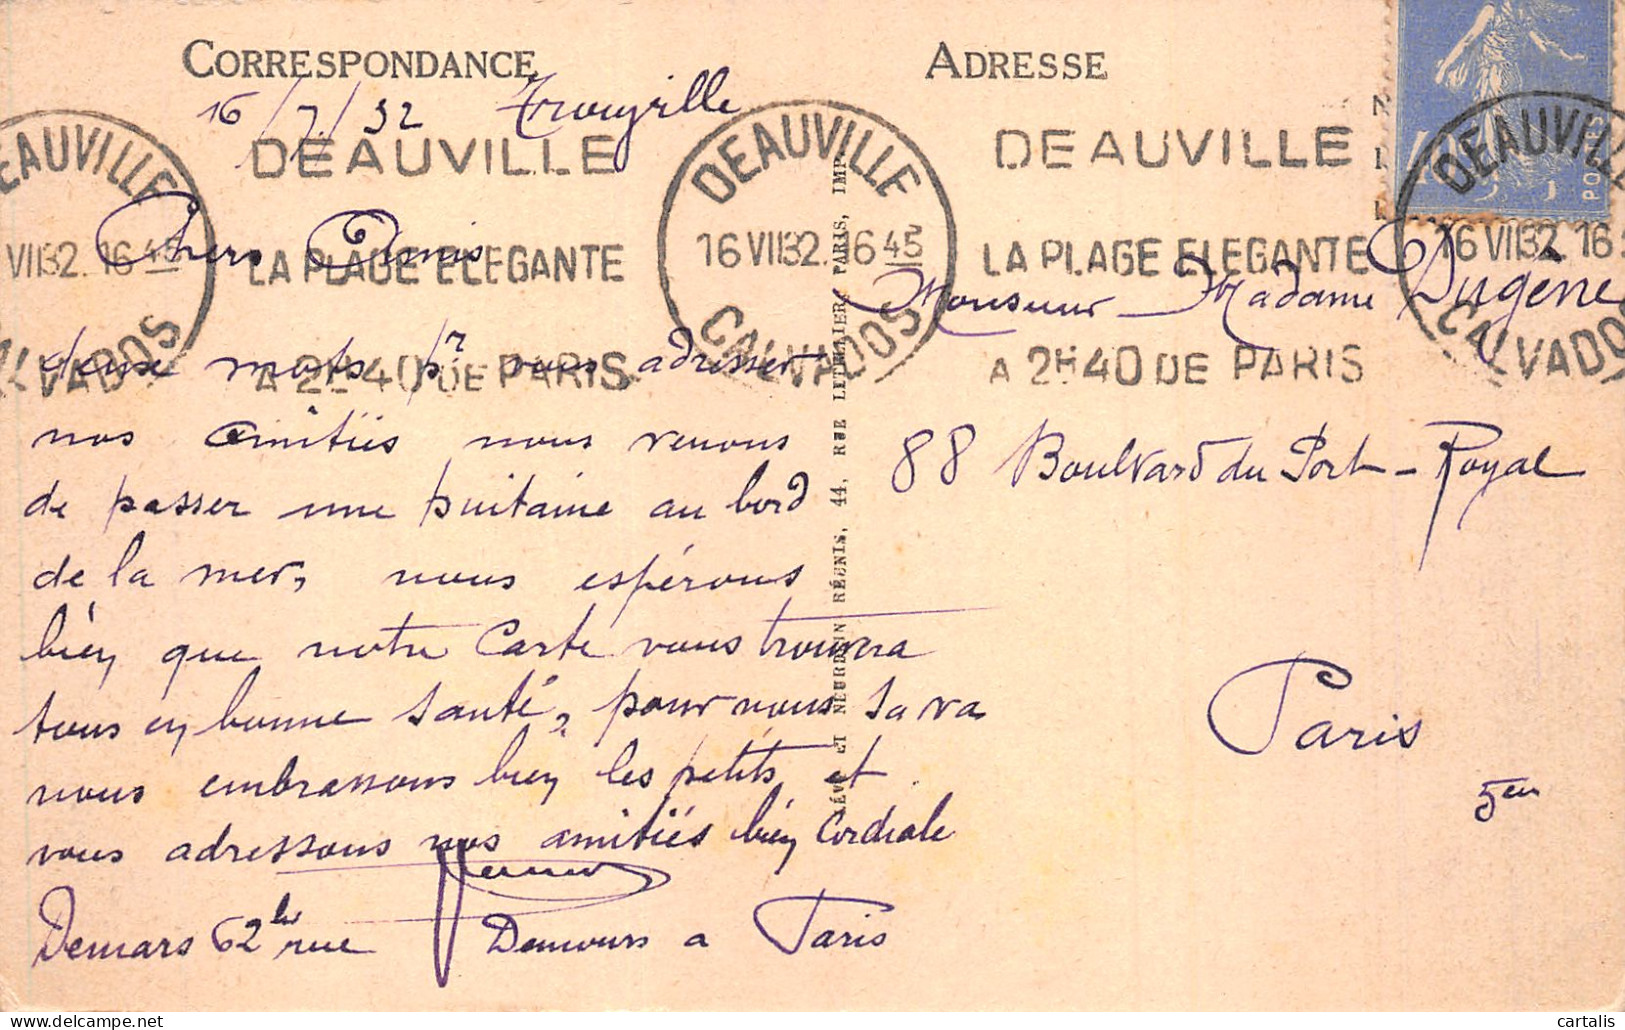 CORRESPONDANCE
16/7/32 Trouville
DEAUVILLE
CALVADOS
VII32. 16 45
DEAUVILLE
LA PLAGE ELEGANTE
A 2H40 DE PARIS
DEAUVILLE
16 VII32. 16 45
CALVADOS
Chers Amis
deux mots pr vous adresser
nos amitiés nous venons
de passer une quitaine au bord
de la mer, nous espérons
bien que notre Carte vous trouvera
tous en bonne santé, pour nous sa va
nous embrassons bien les petits et
vous adressons nos amitiés bien Cordiale
Demars 62 bis rue Damours a Paris
ÈVE ET NEURDEIN RÉUNIS, 44, RUE LETELLIER, PARIS, IMP.
ADRESSE
DEAUVILLE
LA PLAGE ELEGANTE
A 2H40 DE PARIS
POSTES
DEAUVILLE
16 VII32 16
CALVADOS
Monsieur Madame Dugène
88 Boulvard du Port-Royal
Paris
5em
cartalis